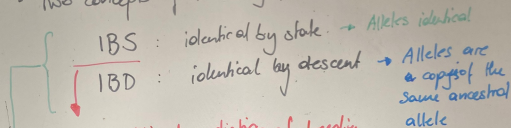 • Two concepts
IBS : identical by state. → Alleles identical
IBD : identical by descent → Alleles are
a copy of the
same ancestral
allele